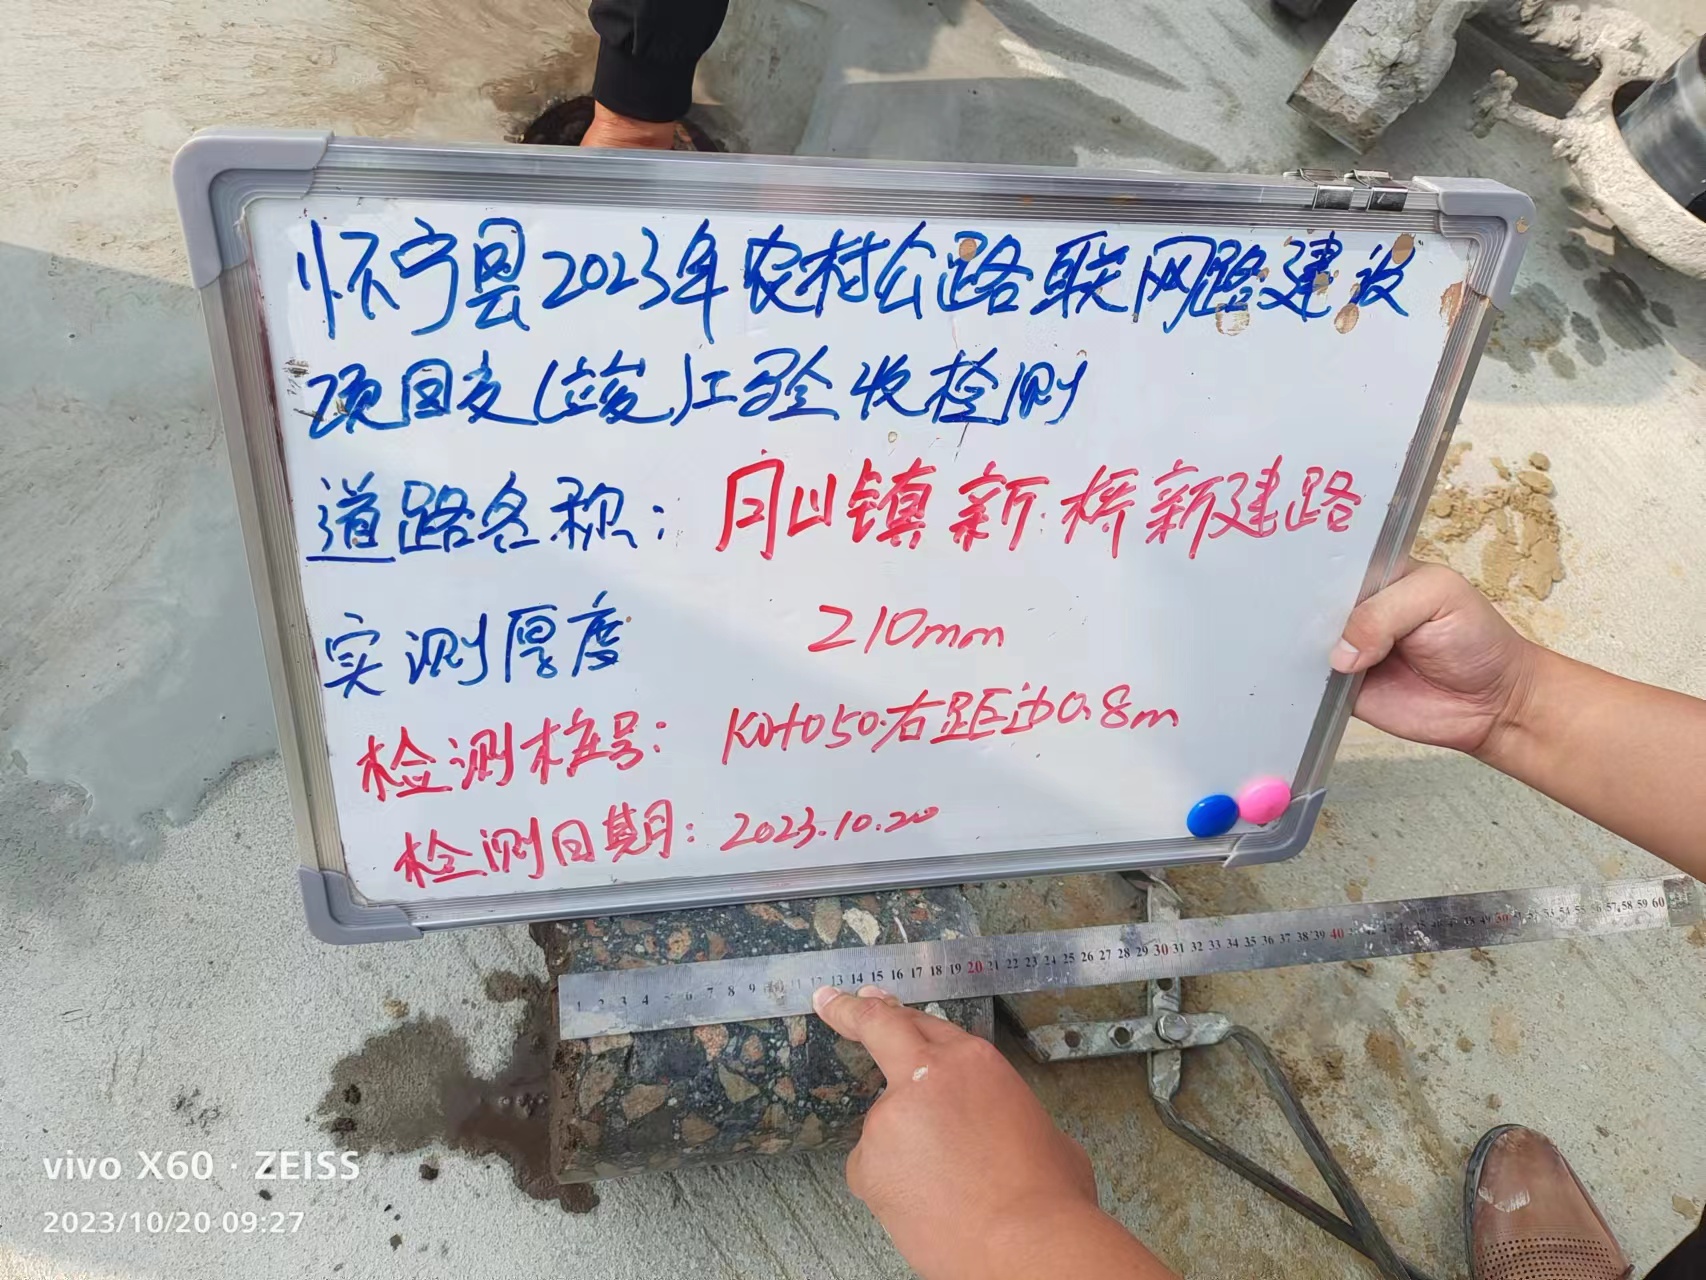 怀宁县2023年农村公路联网路建设
项目交(竣)工验收检测
道路名称: 月山镇新桥新建路
实测厚度 210mm
检测桩号: K0+050右距边0.8m
检测日期: 2023.10.20
1 2 3 4 5 6 7 8 9 10 11 12 13 14 15 16 17 18 19 20 21 22 23 24 25 26 27 28 29 30 31 32 33 34 35 36 37 38 39 40 48 49 50 51 52 53 54 55 56 57 58 59 60
vivo X60 · ZEISS
2023/10/20 09:27